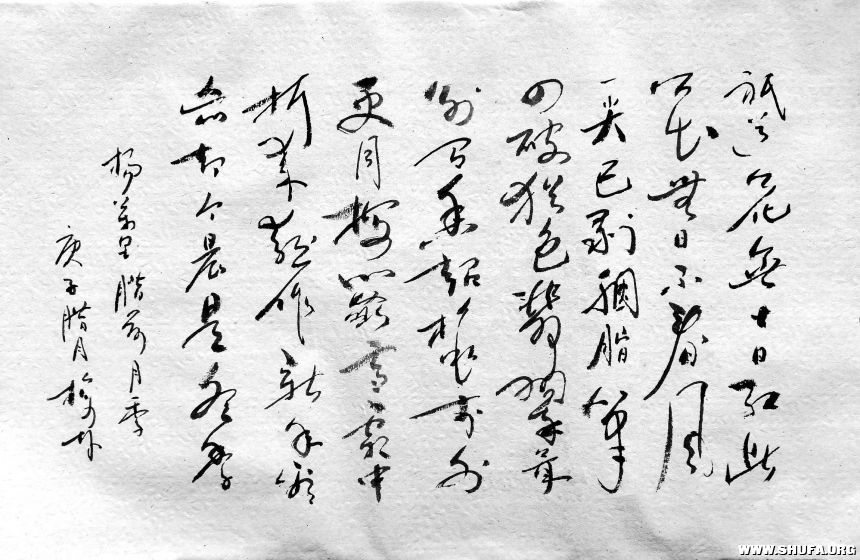 祇道花無十日红此
花無日不春風
一尖已剥胭脂筆
四破猶包翡翠茸
别有香超桃李外
更同梅鬭雪霜中
折来喜作新年看
忘却今晨是冬季
杨萬里腊前月季
庚子腊月
WWW.SHUFA.ORG